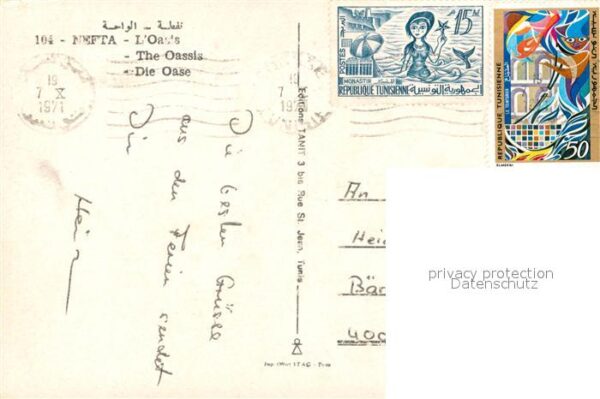 نفطة - الواحة
104 - NEFTA - L'Oasis
- The Oassis
- Die Oase
19
7 X
1971
POSTES
15M
MONASTIR
REPUBLIQUE TUNISIENNE الجمهورية التونسية
REPUBLIQUE TUNISIENNE
50
Editions TANIT 3 bis Rue St. Jean, Tunis
Die besten Grüsse
aus den Ferien sendet
Dir
Hein
An
Hei
Bä
400
privacy protection
Datenschutz